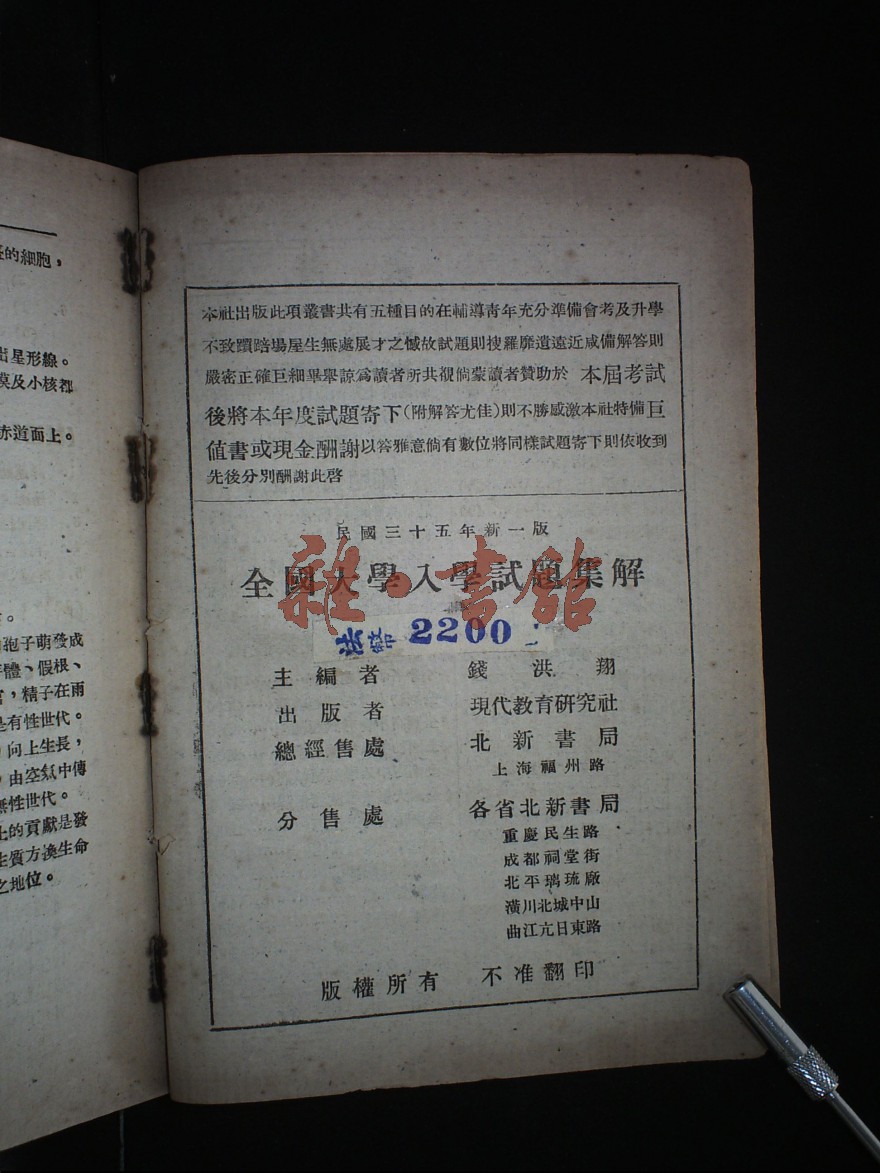 的細胞，
出星形線。
莫及小核都
赤道面上。
。
孢子萌發成
體、假根、
，精子在雨
是有性世代。
向上生長，
由空氣中傳
無性世代。
上的貢獻是發
生質方換生命
之地位。
本社出版此項叢書共有五種目的在輔導青年充分準備會考及升學
不致躓踣場屋生無處展才之憾故試題則搜羅靡遺遠近咸備解答則
嚴密正確巨細畢舉諒爲讀者所共覩倘蒙讀者贊助於 本屆考試
後將本年度試題寄下（附解答尤佳）則不勝感激本社特備巨
值書或現金酬謝以答雅意倘有數位將同樣試題寄下則依收到
先後分別酬謝此啓
民國三十五年新一版
全國大學入學試題集解
雜·書館
法幣 2200
主編者 錢洪翔
出版者 現代教育研究社
總經售處 北新書局
上海福州路
分售處 各省北新書局
重慶民生路
成都祠堂街
北平璃琉廠
潢川北城中山
曲江亢日東路
版權所有 不准翻印